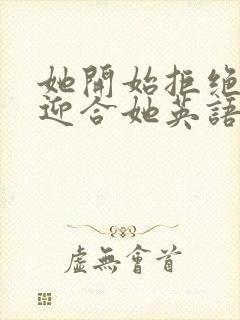 她開始拒絕
迎合她英語
虛無會首